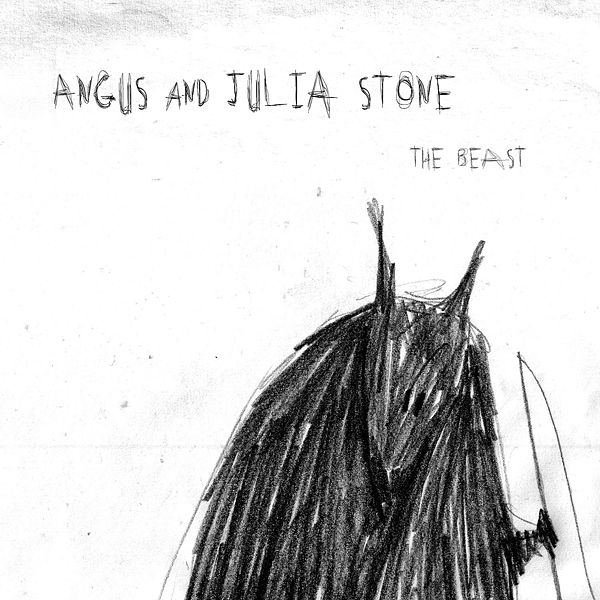 ANGUS AND JULIA STONE
THE BEAST